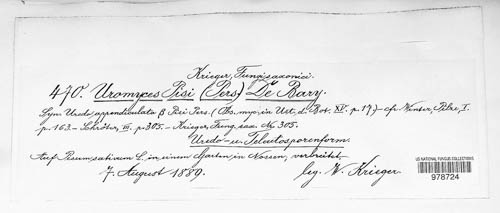 Krieger, Fungi saxonici.
470. Uromyces Pisi (Pers) De Bary.
Syn. Uredo appendiculata β Pisi Pers. (Obs. myc. in Ust. d. Bot. XV. p. 17) – cfr. Winter, Pilze, I.
p. 163. – Schröter, III, p. 305. – Krieger, Fung. sax. No 305.
Uredo- u. Teleutosporenform.
Auf Pisum sativum L. in einem Garten in Nossen, verbreitet.
7. August 1889. leg. W. Krieger.
US NATIONAL FUNGUS COLLECTIONS
978724